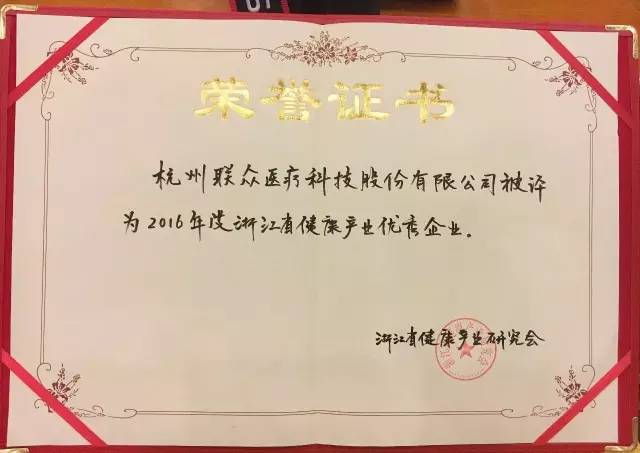 荣誉证书
杭州联众医疗科技股份有限公司被评
为2016年度浙江省健康产业优秀企业。
浙江省健康产业研究会